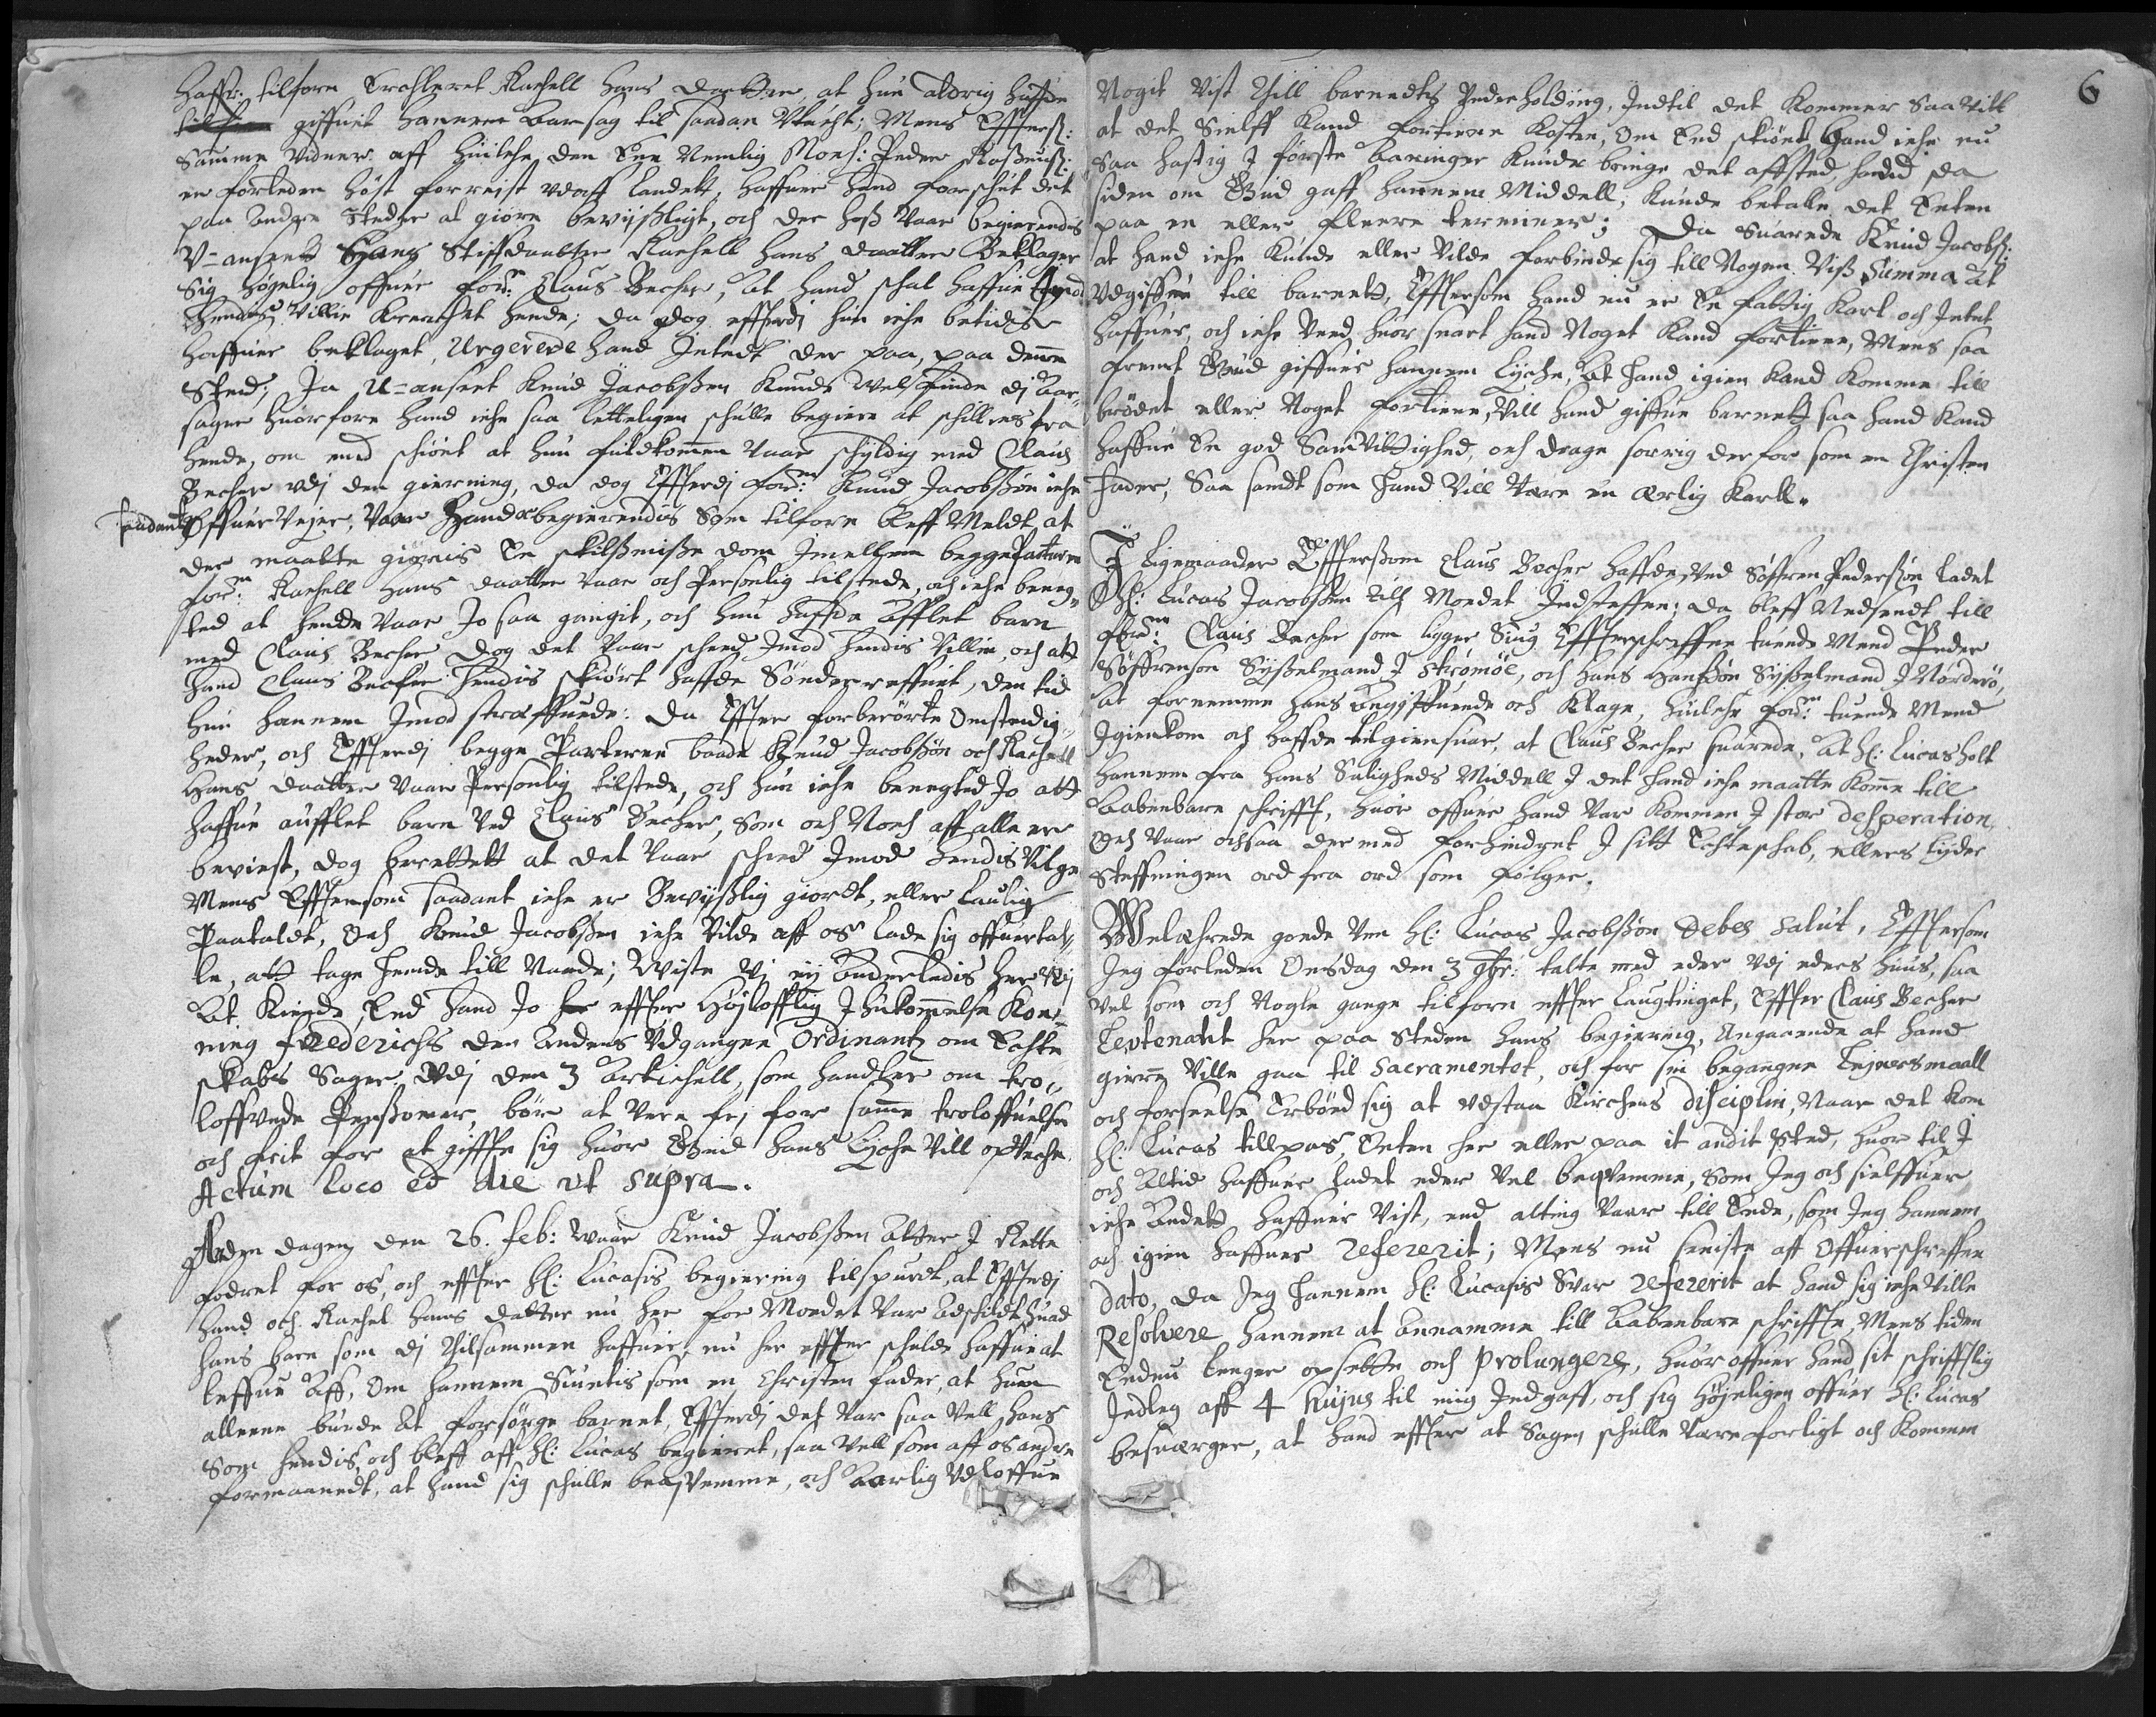 haffr: tilforn Erchleret Rachell Hans daatter, at hun aldrig haffde
giffuet hannem Aarsag til saadan Utucht; Mens Effterß:
Samme Vidner aff huilche den Eene Nemlig Mons: Peder Rasmuß:
er forleden høst forreist udaff landet, haffuer hand forschut det
paa andre steder at giøre beviißligt, och der hoß vaar begierendis
V-anseet Hans Stiffdaatter Rachell Hans daatter Beklager
Sig høyelig offuer for:ne Claus Becher, at hand schal haffue imod
hendis Villie Krenchet hende; da dog effterdj hun iche betidß
haffuer beklaget, Urgerede hand Intedt der paa, paa denne
Sted; Ja U-anseet Knud Jacobßen Kunde Well finde dj Aar-
sager huorfore hand iche saa letteligen schulle begiere at schilles fra
hende, om end schiønt at hun fuldkommen vaar schyldig med Claus
Becher udj den gierning, da dog Effterdj for:ne Knud Jacobßøn iche
saadant Offueruejer, Vaar Hand begierendis Som tilforn bleff Meldt, at
der maatte giøris En skilßmisse dom Imellem begge Parterne
for:ne Rachell Hans daatter vaar och Personlig tilstede, och iche beneg-
ted at hende vaar Jo saa gangit, och hun haffde Afflet barn
med Claus Becher dog det vaar scheed Imod hendis Villie, och att
hand Claus Becher hendis skiørt haffde Sønderreffuet, den tid
hun hannem Imod streffuede: Da Effter forberørte Omstendig-
heder, och Effterdj begge Parterne baade Knud Jacobßøn och Rachell
Hans daatter vaar Personlig tilstede, och hun iche benegted Jo att
haffue aufflet barn Ved Claus Becher, Som och Noch aff alle er
beviest, dog berettett at det vaar scheed Imod hendis Vilge
Mens Efftersom saadant iche er Beviißlig giordt, eller lavlig
Paataldt, Och Knud Jacobßen iche Vilde aff os lade sig offuertal-
le, att tage hende till Naade; Wiste Vj eij Anderledis her udj
At Kiende, End hand Jo effter Høyloflig Ihukommelse Kon-
ning Frederichs den Andens Udgangne Ordinantz om Echte-
skabs Sager Udj den 3 Artichell, som handler om tro-
loffuede Persohner, bør at Vere frj for samme troloffuelse
och frit for at giffte sig huor Gud hans Lyche Vill opteche.
Actum loco et die ut supra.
Anden dagen den 26. feb: Waar Knud Jacobßen Atter I Rette
fodret for os, och effter Hr: Lucasis begiering tilspurdt, at Effterdj
hand och Rachel Hans datter nu her for Moedet var Adskildt huad
hans barn som dj Tilsammen haffuer, nu her effter schulde haffue at
leffue Aff, Om hannem Siuntis som en Christen fader, at hun
alleene burde At forsørge barnet, Effterdj det var saa Vell hans
Som hendis, och bleff aff Hr: Lucas begieret, saa Vell som aff os andre
formaanedt, at hand sig schulle beqvemme, och Aarlig Udloffue
6
Nogit Vist Till barnedtz Underholding, Indtil det Kommer saa vitt
at det Sielff Kand fortiene Kosten, Om End skiønt hand iche nu
Saa hastig I første Aaringer Kunde bringe det affsted, hand da
siden om Gud gaff hannem Middell, Kunde betalle det Enten
paa en eller fleere terminer; Da Suarede Knud Jacobß:
at hand iche Kunde eller Vilde forbinde sig till Nogen Viß Summa at
Udgiffue till barnett, Efftersom hand nu er En fattig Karl och Intet
haffuer, och iche Veed huor snart hand Noget Kand fortiene, Mens saa
fremt Gud giffuer hannem Lyche, At hand igien Kand Komme till
brødet eller Noget fortiene, Vill hand giffue barnett saa hand Kand
haffue En god Samvittighed, och drage sorrig derfor som en Christen
fader, Saa sandt som hand Vill Være en ærlig Karll.
I Ligemaader Efftersom Claus Becher haffde Ved Søffren Pederßøn ladet
Hr: Lucas Jacobßen Till Moedet Indsteffne; da bleff Nedsendt till
for:ne Claus Becher som ligger Siug Effterschreffne tuende Mend Peder
Søffrensøn Syßelmand I Strømøe, och Hans Hanßøn Syßelmand I Norderø,
At fornemme hans Angiffuende och Klage, huilche for:ne tuende Mend
Igienkom och haffde tilgiensuar, at Claus Becher suarede, At Hr: Lucas holt
hannem fra hans Saligheds Middell I det hand iche maatte Komme till
Aabenbare schrifft, huor offuer hand var Kommen I stor desperation,
Och vaar ochsaa der med forhindret I sitt Echteschab, ellers lyder
Steffningen ord fra ord som følger.
Welærede goede Ven Hr: Lucas Jacobßøn Debes salut, Efftersom
Jeg forleden Onsdag den 3 9br: talte med eder Udj eders huus, saa
vel som och Nogle gange tilforn effter laugtinget, Effter Claus Becher
Leutenatt her paa Steden hans begiering, Angaaende at hand
gierne Ville gaa til Sacramentet, och for sin begangne Leyersmaall
och forseelse Erbød sig at udstaa Kirchens disciplin, Naar det kom
Hr: Lucas tillpas, Enten her eller paa it andit sted, huor til I
och Altid haffuer ladet eder vel beqvemme, Som Jeg och sielffuer
iche Andet haffuer Vist, end alting vaar till Ende, som Jeg hannem
och igien haffuer refererit; Mens nu seeniste aff Offuerschreffne
dato, da Jeg hannem Hr: Lucasis Svar refererit at hand sig iche Ville
Resolvere hannem at annamme till Aabenbare schriffte, Mens tiden
Endnu lenger opsette och prolungere, huoroffuer hand sit schrifftlig
Indleg aff 4 hujus til mig Indgaff, och sig Høyeligen offuer Hr: Lucas
besuerger, at hand effter at Sagen schulle Være forligt och Kommen